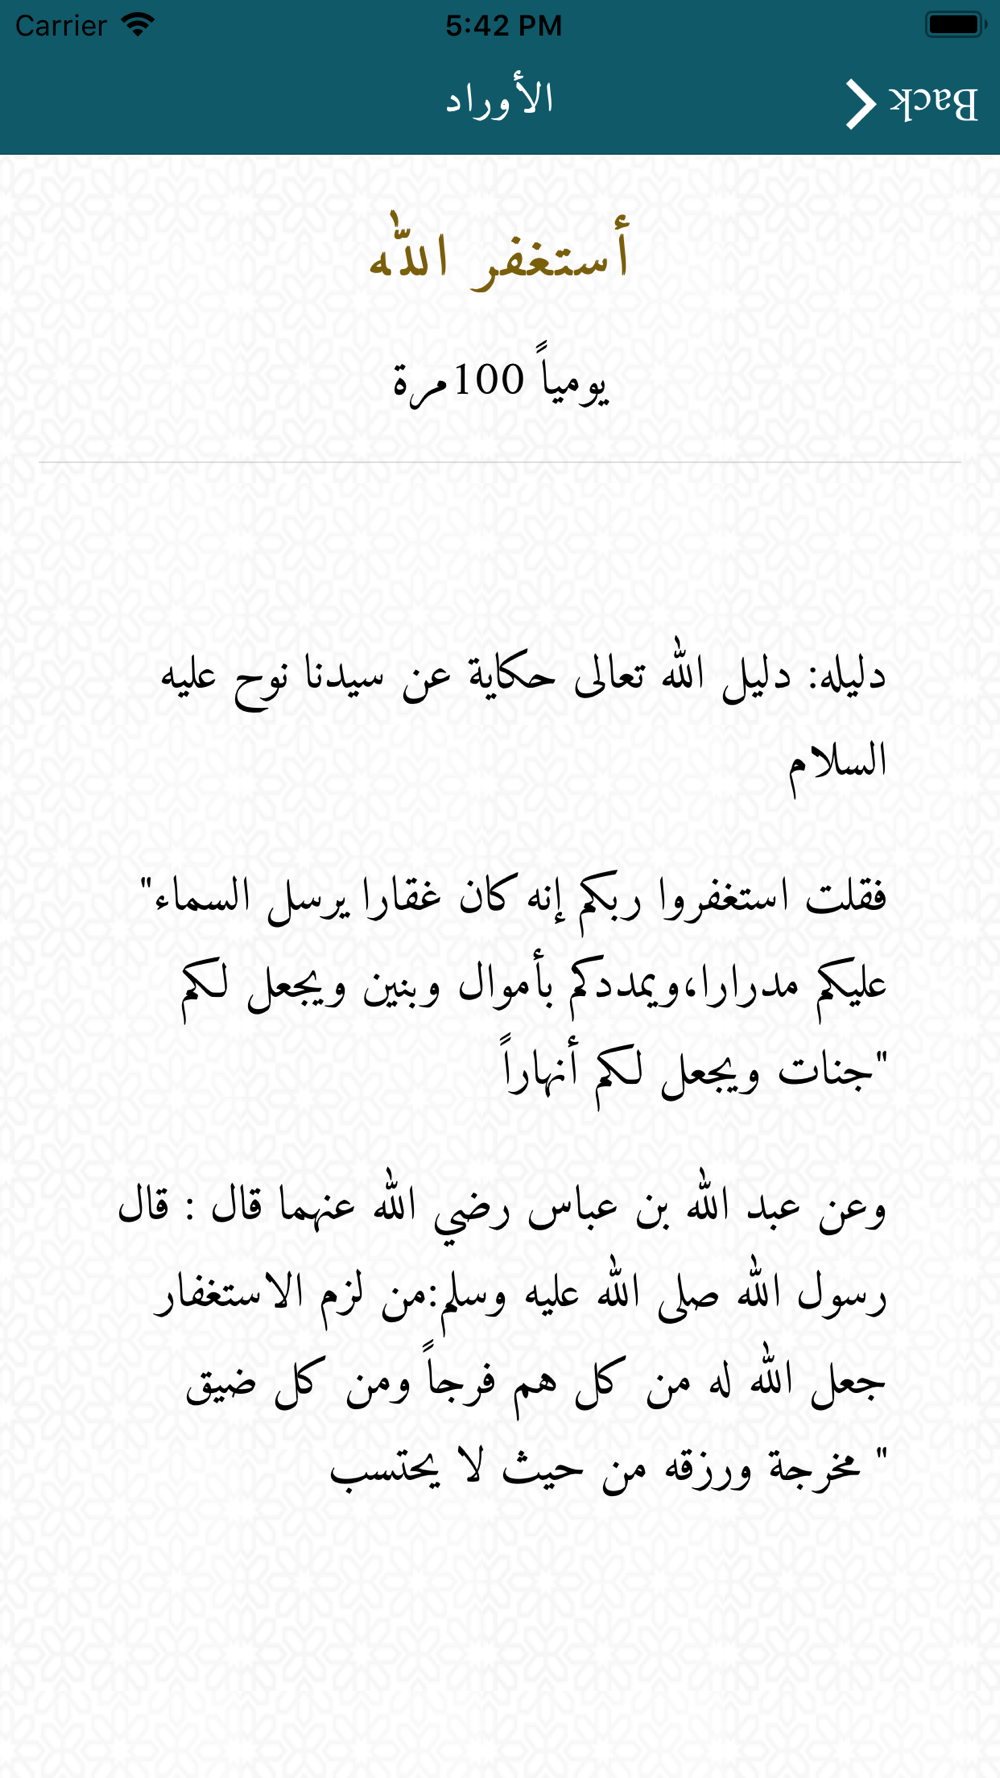 Carrier 5:42 PM
الأوراد
Back
أستغفر الله
يومياً 100مرة
دليله: دليل الله تعالى حكاية عن سيدنا نوح عليه
السلام
فقلت استغفروا ربكم إنه كان غقارا يرسل السماء"
عليكم مدرارا،ويمددكم بأموال وبنين ويجعل لكم
"جنات ويجعل لكم أنهاراً
وعن عبد الله بن عباس رضي الله عنهما قال : قال
رسول الله صلى الله عليه وسلم:من لزم الاستغفار
جعل الله له من كل هم فرجاً ومن كل ضيق
" مخرجة ورزقه من حيث لا يحتسب